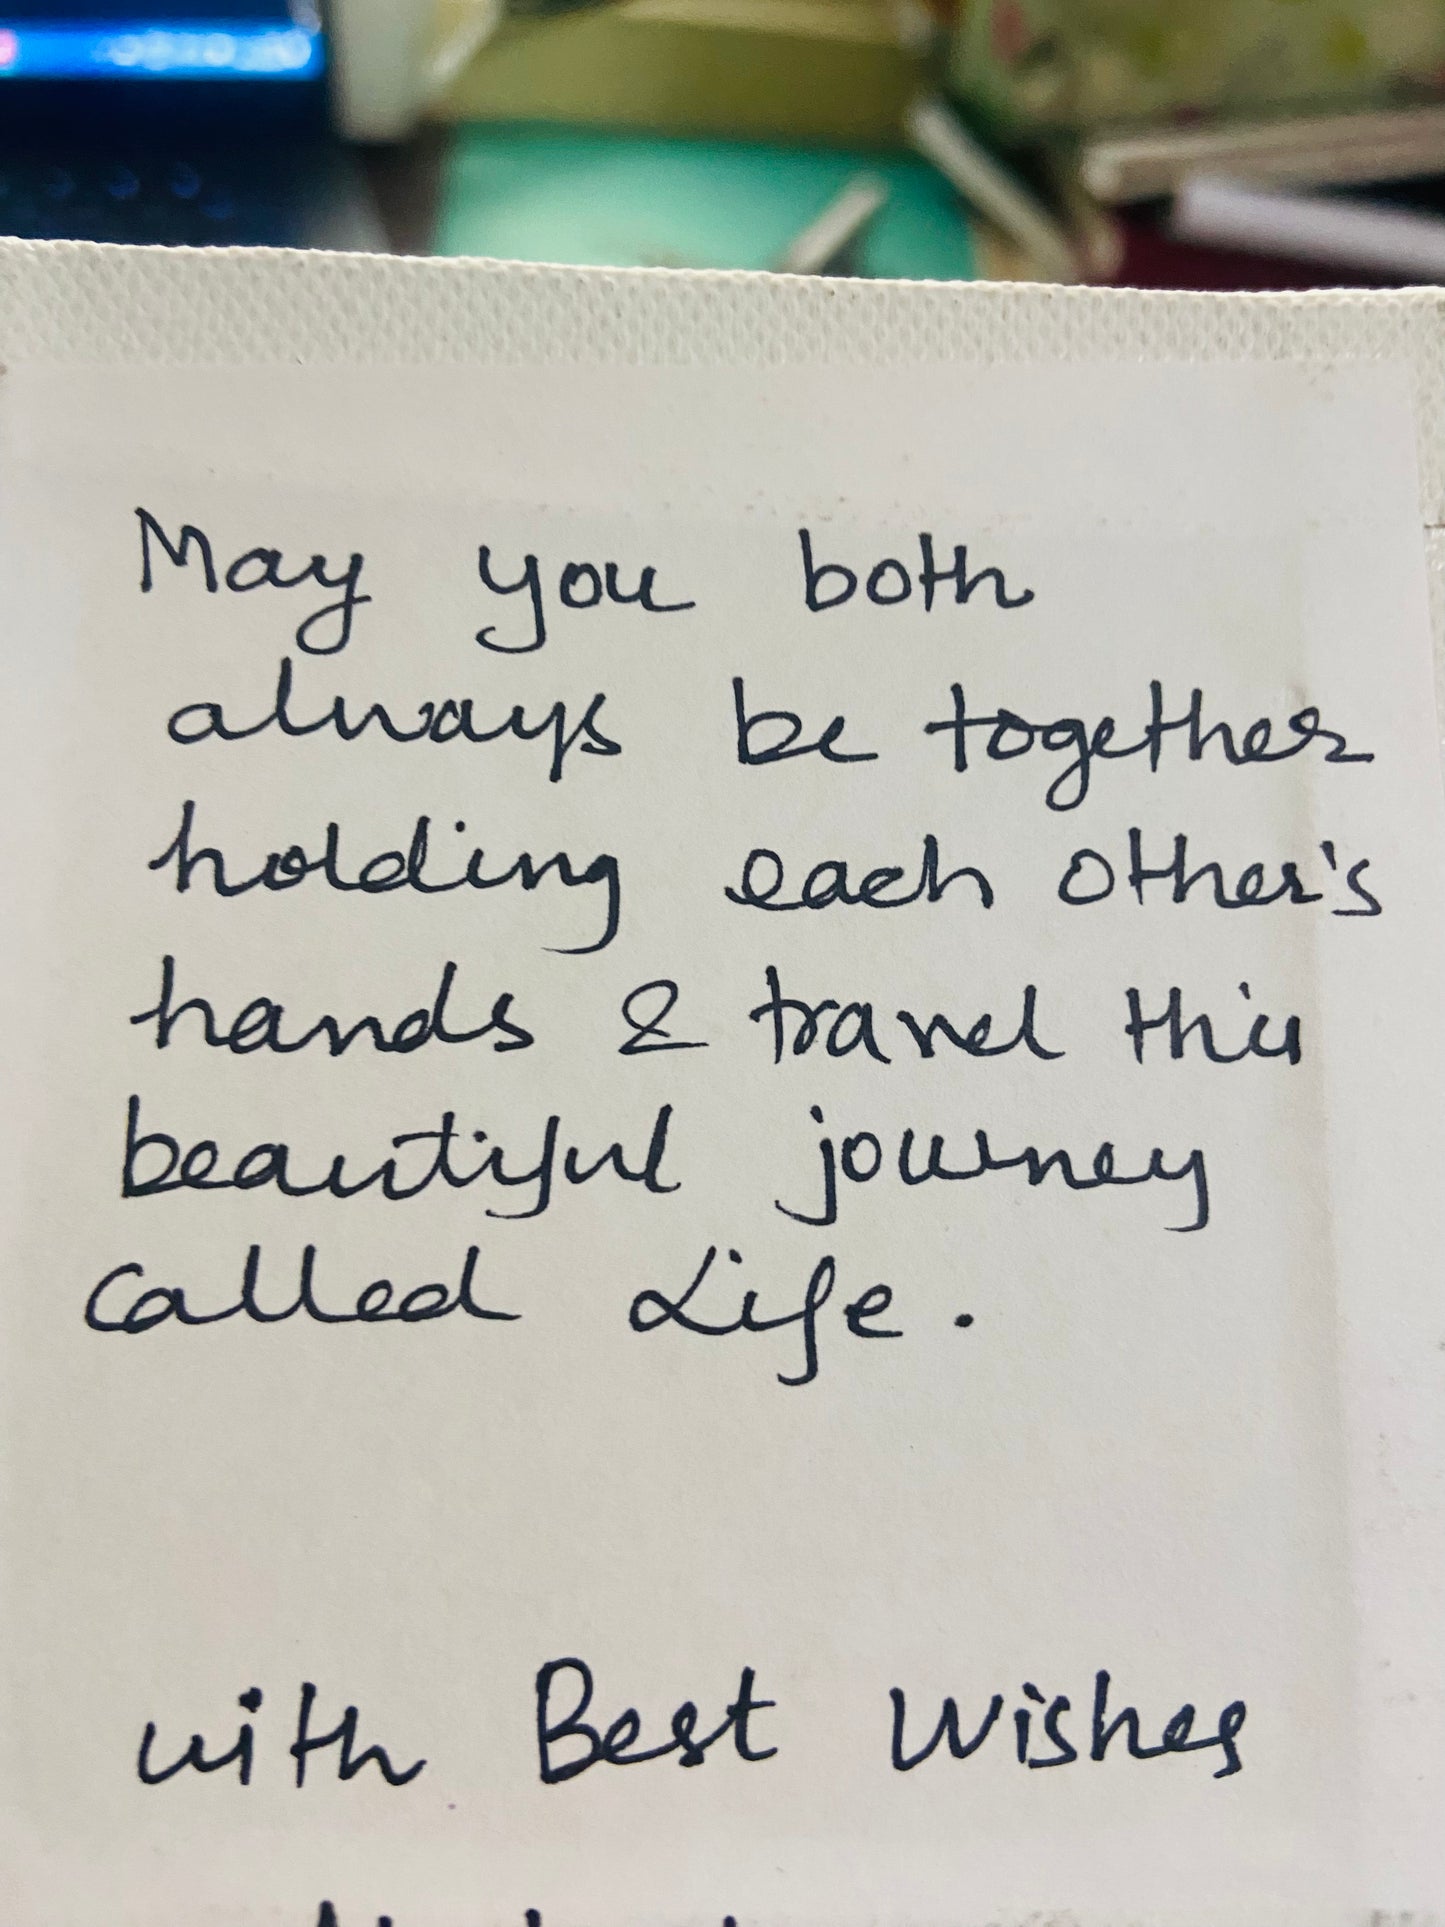 May you both
always be together
holding each other's
hands & travel this
beautiful journey
called Life.
with Best Wishes